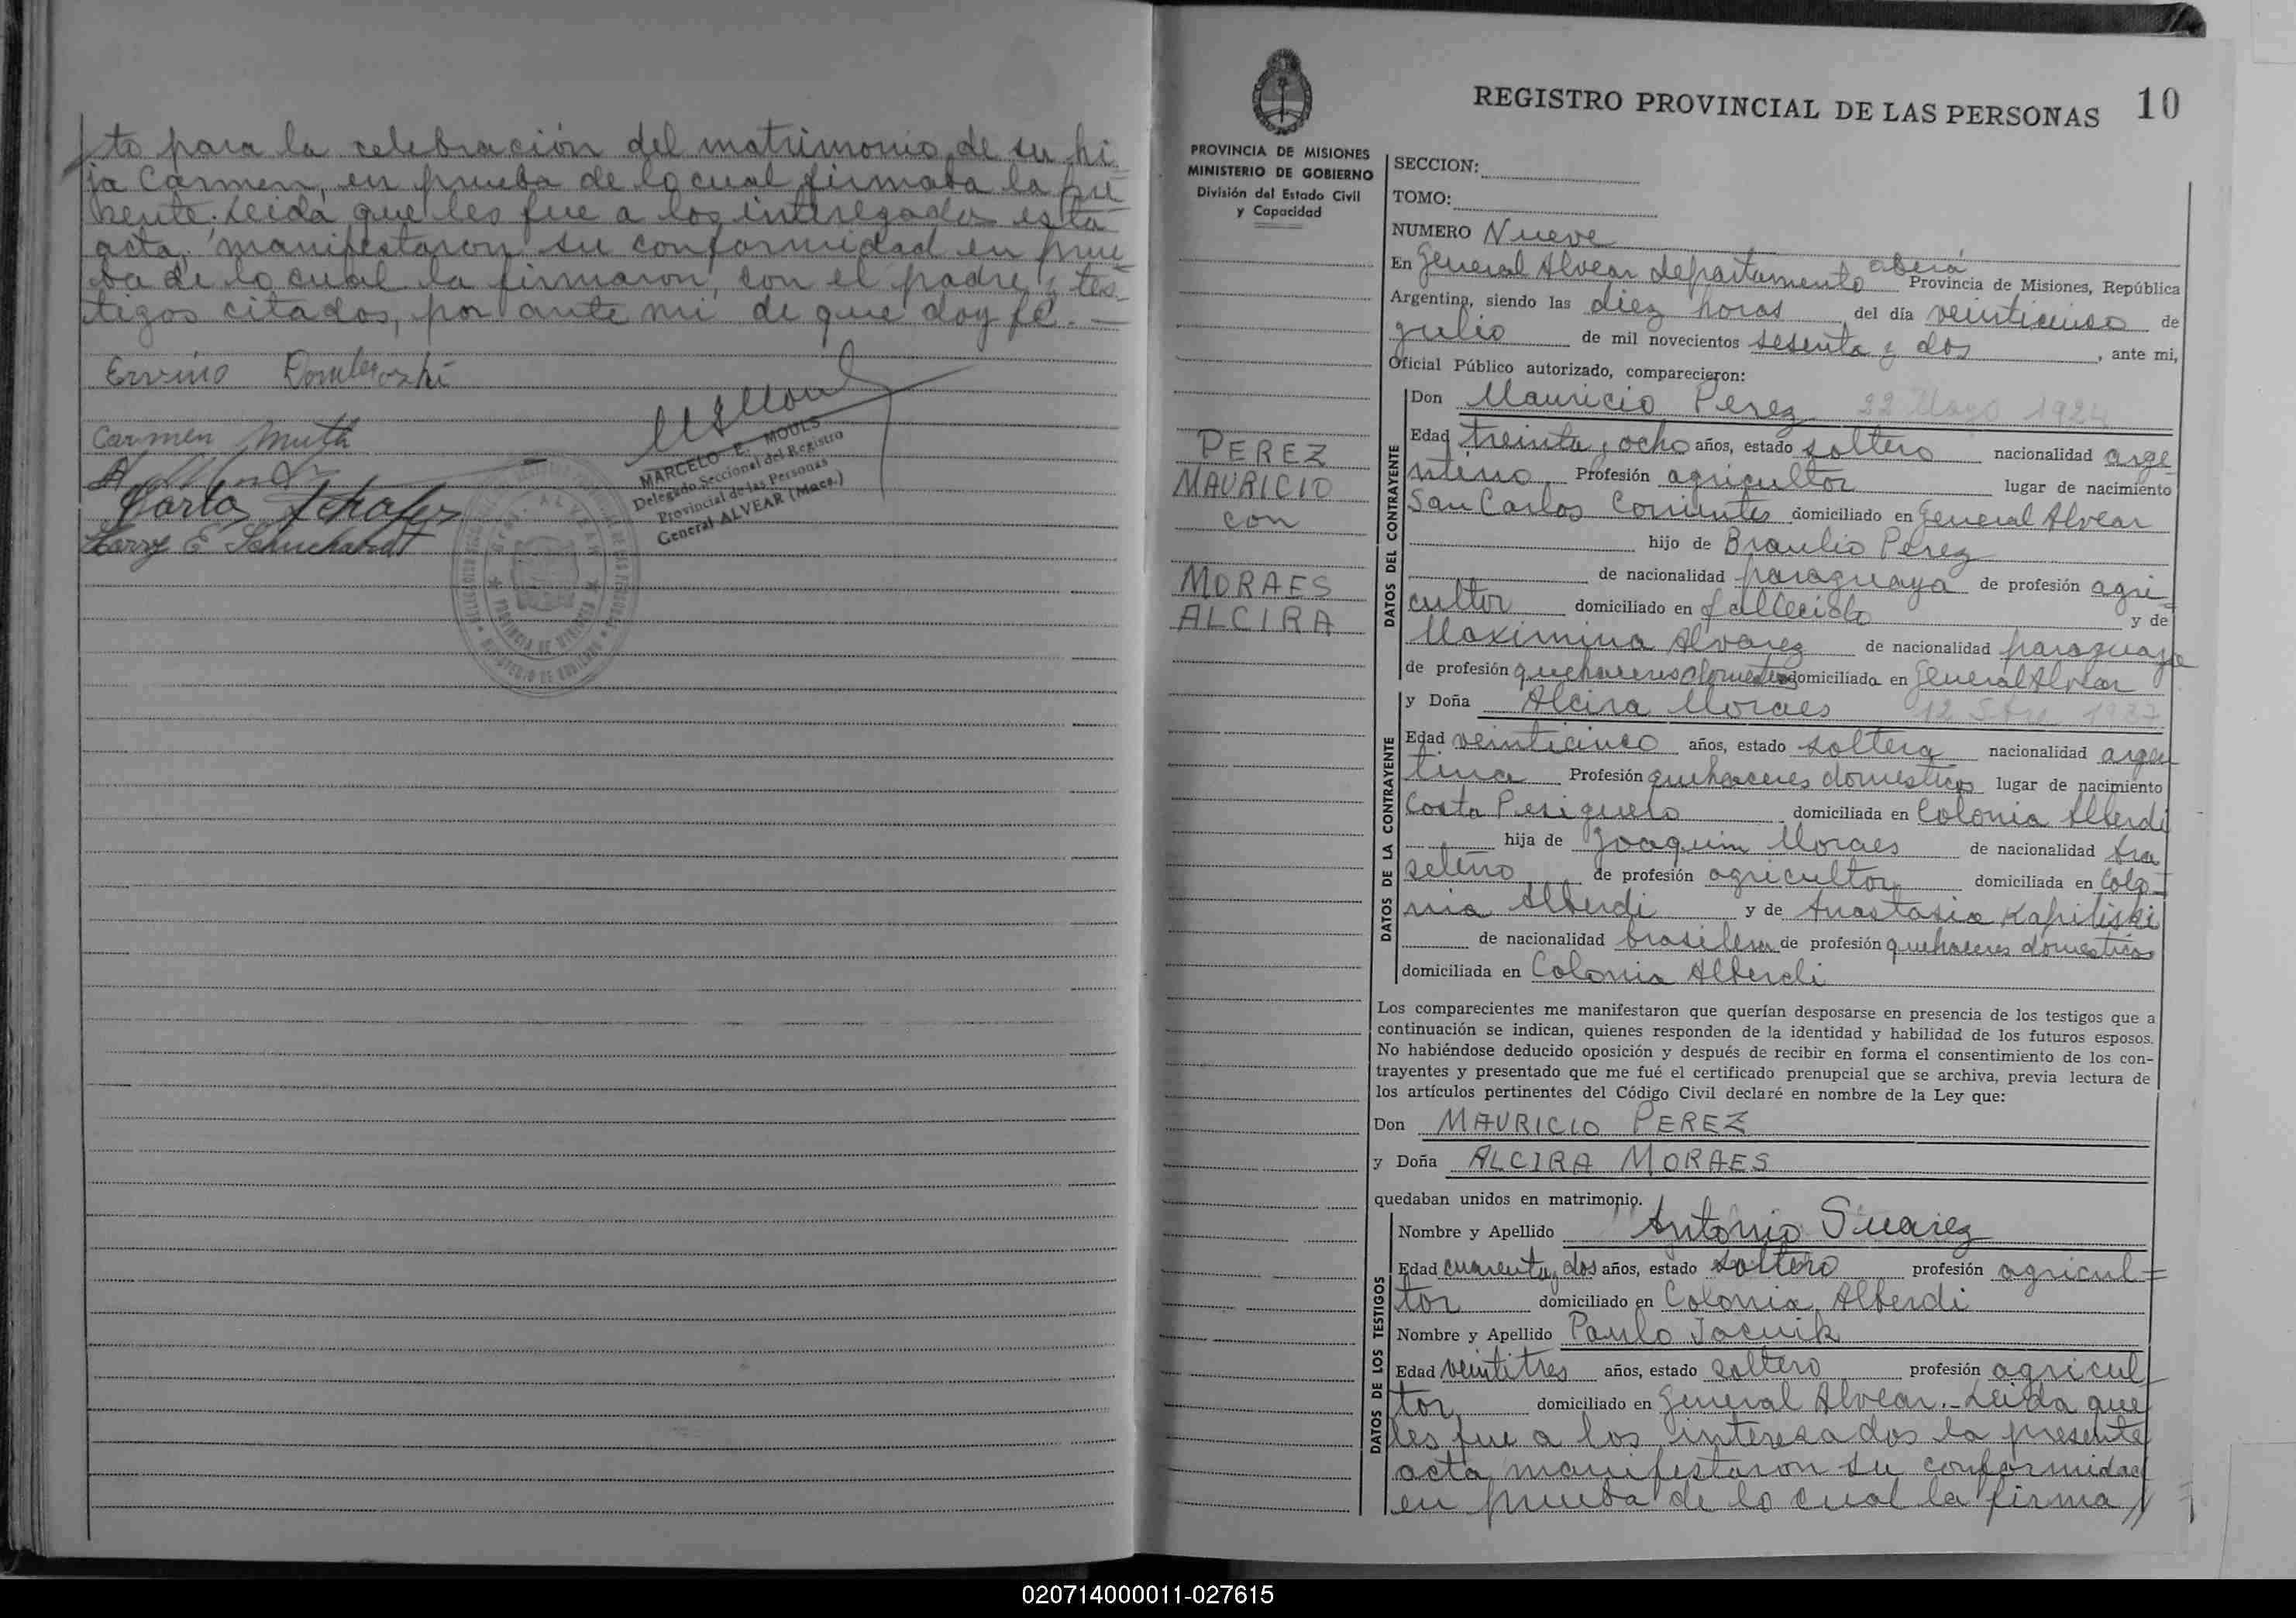 to para la celebración del matrimonio de su hi
ja Carmen, en prueba de lo cual firmara la pre
sente. Leida que les fue a los interesados esta
acta, manifestaron su conformidad en prue
ba de lo cual la firmaron, con el padre y tes
tigos citados, por ante mi de que doy fé. —
Ervino
Carmen Muth
Carlos Schafer
Harry E Schuchardt
MARCELO E. MOULS
Delegado Seccional del Registro
Provincial de las Personas
General ALVEAR (Mnes.)
REGISTRO PROVINCIAL DE LAS PERSONAS 10
PROVINCIA DE MISIONES
MINISTERIO DE GOBIERNO
División del Estado Civil
y Capacidad
PEREZ
MAURICIO
con
MORAES
ALCIRA
SECCION:
TOMO:
NUMERO Nueve
En General Alvear departamento oberá Provincia de Misiones, República
Argentina, siendo las diez horas del día veinticinco de
julio de mil novecientos sesenta y dos, ante mi,
Oficial Público autorizado, comparecieron:
DATOS DEL CONTRAYENTE
Don Mauricio Perez 22 Mayo 1924
Edad treinta y ocho años, estado soltero nacionalidad arge
ntino Profesión agricultor lugar de nacimiento
San Carlos Corrientes domiciliado en General Alvear
hijo de Braulio Perez
de nacionalidad paraguaya de profesión agri
cultor domiciliado en fallecido y de
Maximina Alvarez de nacionalidad paraguaya
de profesión quehaceres domesticos domiciliada en General Alvear
DATOS DE LA CONTRAYENTE
y Doña Alcira Moraes 12 1937
Edad veinticinco años, estado soltera nacionalidad argen
tina Profesión quehaceres domesticos lugar de nacimiento
Costa domiciliada en Colonia Alberdi
hija de Joaquim Moraes de nacionalidad bra
seleño de profesión agricultor domiciliada en Colo-
nia Alberdi y de Anastasia Kapiliski
de nacionalidad brasilera de profesión quehaceres domesticos
domiciliada en Colonia Alberdi
Los comparecientes me manifestaron que querían desposarse en presencia de los testigos que a
continuación se indican, quienes responden de la identidad y habilidad de los futuros esposos.
No habiéndose deducido oposición y después de recibir en forma el consentimiento de los con-
trayentes y presentado que me fué el certificado prenupcial que se archiva, previa lectura de
los artículos pertinentes del Código Civil declaré en nombre de la Ley que:
Don MAURICIO PEREZ
y Doña ALCIRA MORAES
quedaban unidos en matrimonio.
DATOS DE LOS TESTIGOS
Nombre y Apellido Antonio Suarez
Edad cuarenta y dos años, estado soltero profesión agricul=
tor domiciliado en Colonia Alberdi
Nombre y Apellido Paulo Jacuik
Edad veintitres años, estado soltero profesión agricul
tor domiciliado en General Alvear.- Leida que
les fue a los interesados la presente
acta, manifestaron su conformidad
en prueba de lo cual la firma//
020714000011-027615